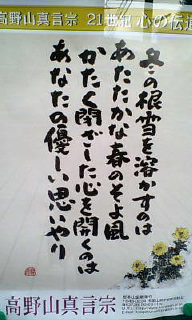 高野山真言宗 21世紀 心の伝道
冬の根雪を溶かすのは
あたたかな春のそよ風
かたく閉ざした心を開くのは
あなたの優しい思いやり
高野山真言宗